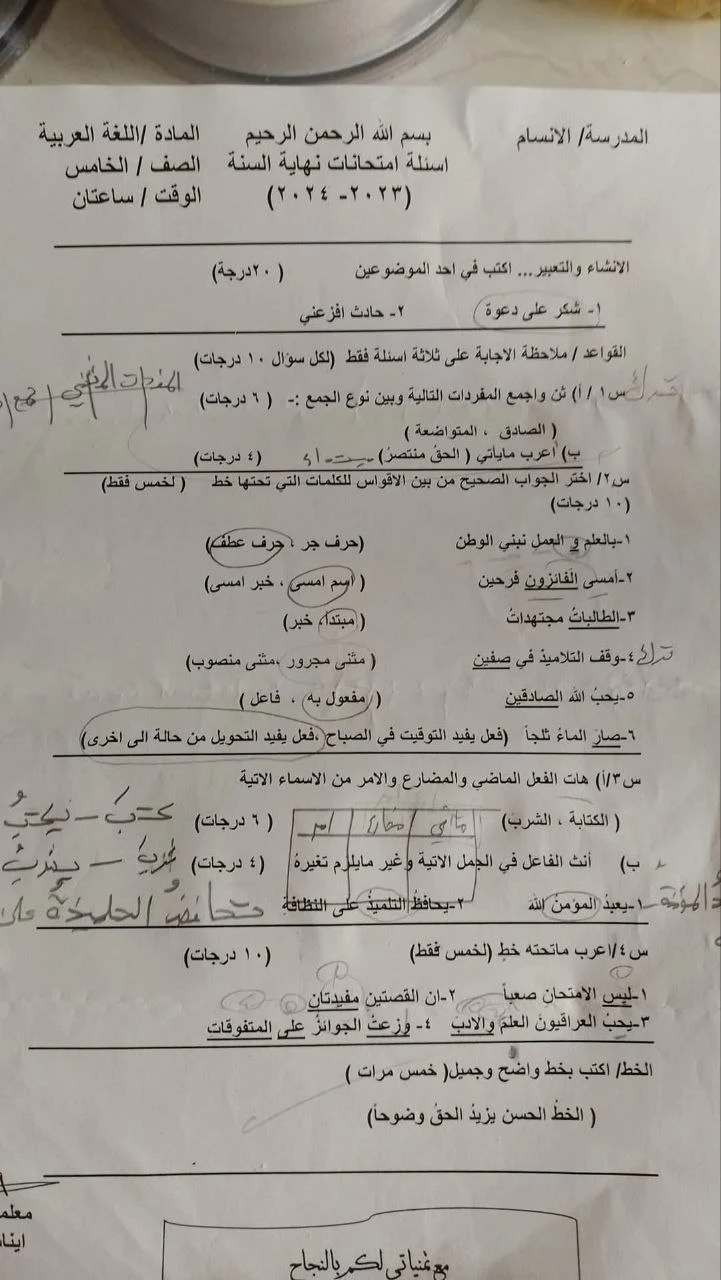 المدرسة/ الانسام    بسم الله الرحمن الرحيم    المادة /اللغة العربية
اسئلة امتحانات نهاية السنة    الصف / الخامس
(٢٠٢٣- ٢٠٢٤)    الوقت / ساعتان
الانشاء والتعبير... اكتب في احد الموضوعين    (٢٠درجة)
١- شكر على دعوة    ٢- حادث افزعني
القواعد / ملاحظة الاجابة على ثلاثة اسئلة فقط (لكل سؤال ١٠ درجات)
س١/ أ) ثن واجمع المفردات التالية وبين نوع الجمع :- (٦ درجات)
المفردات المثنى جمع
(الصادق ، المتواضعة )
ب) أعرب مايأتي ( الحقُ منتصرُ)    (٤ درجات)
س٢/ اختر الجواب الصحيح من بين الاقواس للكلمات التي تحتها خط    ( لخمس فقط)
(١٠ درجات)
١-بالعلم و العمل نبني الوطن    (حرف جر ، حرف عطف)
٢-أمسى الفائزون فرحين    ( اسم امسى ، خبر امسى)
٣-الطالباتُ مجتهداتُ    ( مبتدا، خبر)
٤-وقف التلاميذ في صفين    ( مثنى مجرور ،مثنى منصوب)
٥-يحبُ الله الصادقين    ( مفعول به ، فاعل )
٦-صارَ الماءُ ثلجاً    (فعل يفيد التوقيت في الصباح ،فعل يفيد التحويل من حالة الى اخرى)
س٣/أ) هات الفعل الماضي والمضارع والامر من الاسماء الاتية
( الكتابة ، الشربَ)    ماضي مضارع امر    (٦ درجات)    كتبَ – يكتبُ
ب)    أنث الفاعل في الجمل الاتية وغير مايلزم تغيرهُ    (٤ درجات)    شربَ – يشربُ
١-يعبدُ المؤمنُ الله    ٢-يحافظُ التلميذُ على النظافةِ    تحافظُ التلميذةُ على
المؤمنة
س٤/اعرب ماتحته خط (لخمس فقط)    (١٠ درجات)
١-ليس الامتحان صعباً    ٢-ان القصتين مفيدتان
٣-يحبُ العراقيونَ العلمَ والادبَ    ٤- وزعتُ الجوائزُ على المتفوقات
الخط/ اكتب بخط واضح وجميل( خمس مرات )
( الخطُ الحسن يزيدُ الحقُ وضوحاً)
مع تمنياتي لكم بالنجاح